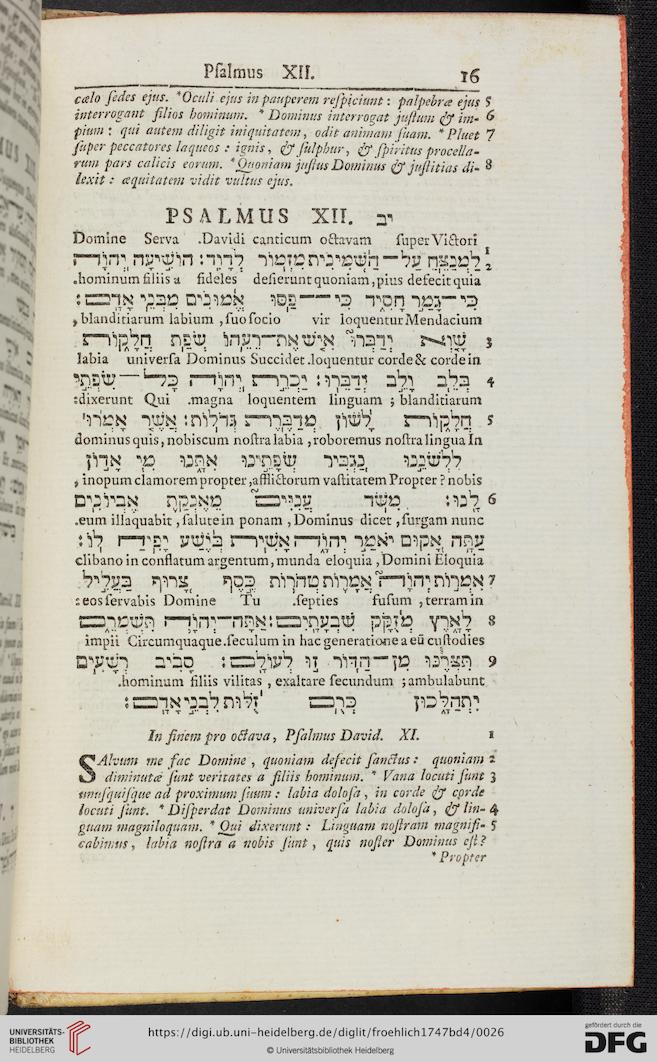 Pſalmus XII. 16
cælo ſedes ejus. *Oculi ejus in pauperem reſpiciunt : palpebræ ejus 5
interrogant filios hominum. * Dominus interrogat juſtum & im- 6
pium : qui autem diligit iniquitatem, odit animam ſuam. * Pluet 7
ſuper peccatores laqueos : ignis, & ſulphur, & ſpiritus procella-
rum pars calicis eorum. * Quoniam juſtus Dominus & juſtitias di- 8
lexit : æquitatem vidit vultus ejus.
PSALMUS XII. יב
Domine Serva .Davidi canticum octavam ſuper Victori 1
לַמְנַצֵּחַ עַל־הַשְּׁמִינִית מִזְמוֹר לְדָוִד׃ הוֹשִׁיעָה יְהוָֹה 2
.hominum filiis a fideles deſierunt quoniam, pius defecit quia
כִּי־גָמַר חָסִיד כִּי־פַסּוּ אֱמוּנִים מִבְּנֵי אָדָם׃
, blanditiarum labium , ſuo ſocio vir loquentur Mendacium
שָׁוְא יְדַבְּרוּ אִישׁ אֶת־רֵעֵהוּ שְׂפַת חֲלָקוֹת 3
labia univerſa Dominus Succidet .loquentur corde & corde in
בְּלֵב וָלֵב יְדַבֵּרוּ׃ יַכְרֵת יְהוָֹה כָּל־שִׂפְתֵי 4
:dixerunt Qui .magna loquentem linguam ; blanditiarum
חֲלָקוֹת לָשׁוֹן מְדַבֶּרֶת גְּדֹלוֹת׃ אֲשֶׁר אָמְרוּ 5
dominus quis, nobiscum noſtra labia , roboremus noſtra lingua In
לִלְשֹׁנֵנוּ נַגְבִּיר שְׂפָתֵינוּ אִתָּנוּ מִי אָדוֹן
, inopum clamorem propter , afflictorum vaſtitatem Propter ? nobis
לָנוּ׃ מִשֹּׁד עֲנִיִּים מֵאֶנְקַת אֶבְיוֹנִים 6
.eum illaqueabit , ſalute in ponam , Dominus dicet , ſurgam nunc
עַתָּה אָקוּם יֹאמַר יְהוָֹה אָשִׁית בְּיֵשַׁע יָפִיחַ לוֹ׃
clibano in conflatum argentum, munda eloquia , Domini Eloquia
אִמְרוֹת יְהוָֹה אֲמָרוֹת טְהֹרוֹת כֶּסֶף צָרוּף בַּעֲלִיל 7
: eos ſervabis Domine Tu .ſepties fuſum , terram in
לָאָרֶץ מְזֻקָּק שִׁבְעָתָיִם׃ אַתָּה־יְהוָֹה תִּשְׁמְרֵם 8
impii Circumquaque .ſeculum in hac generatione a eū cuſtodies
תִּצְּרֶנּוּ מִן־הַדּוֹר זוּ לְעוֹלָם׃ סָבִיב רְשָׁעִים 9
.hominum filiis vilitas , exaltare ſecundum ; ambulabunt
יִתְהַלָּכוּן כְּרֻם זֻלּוּת לִבְנֵי אָדָם׃
In finem pro octava, Pſalmus David. XI. 1
SAlvum me fac Domine , quoniam defecit ſanctus : quoniam 2
diminutæ ſunt veritates a filiis hominum. * Vana locuti ſunt 3
unuſquiſque ad proximum ſuum : labia doloſa, in corde & corde
locuti ſunt. * Diſperdat Dominus univerſa labia doloſa, & lin- 4
guam magniloquam. * Qui dixerunt : Linguam noſtram magnifi- 5
cabimus, labia noſtra a nobis ſunt , quis noſter Dominus eſt?
* Propter
UNIVERSITÄTS-
BIBLIOTHEK
HEIDELBERG
https://digi.ub.uni-heidelberg.de/diglit/froehlich1747bd4/0026
© Universitätsbibliothek Heidelberg
gefördert durch die
DFG